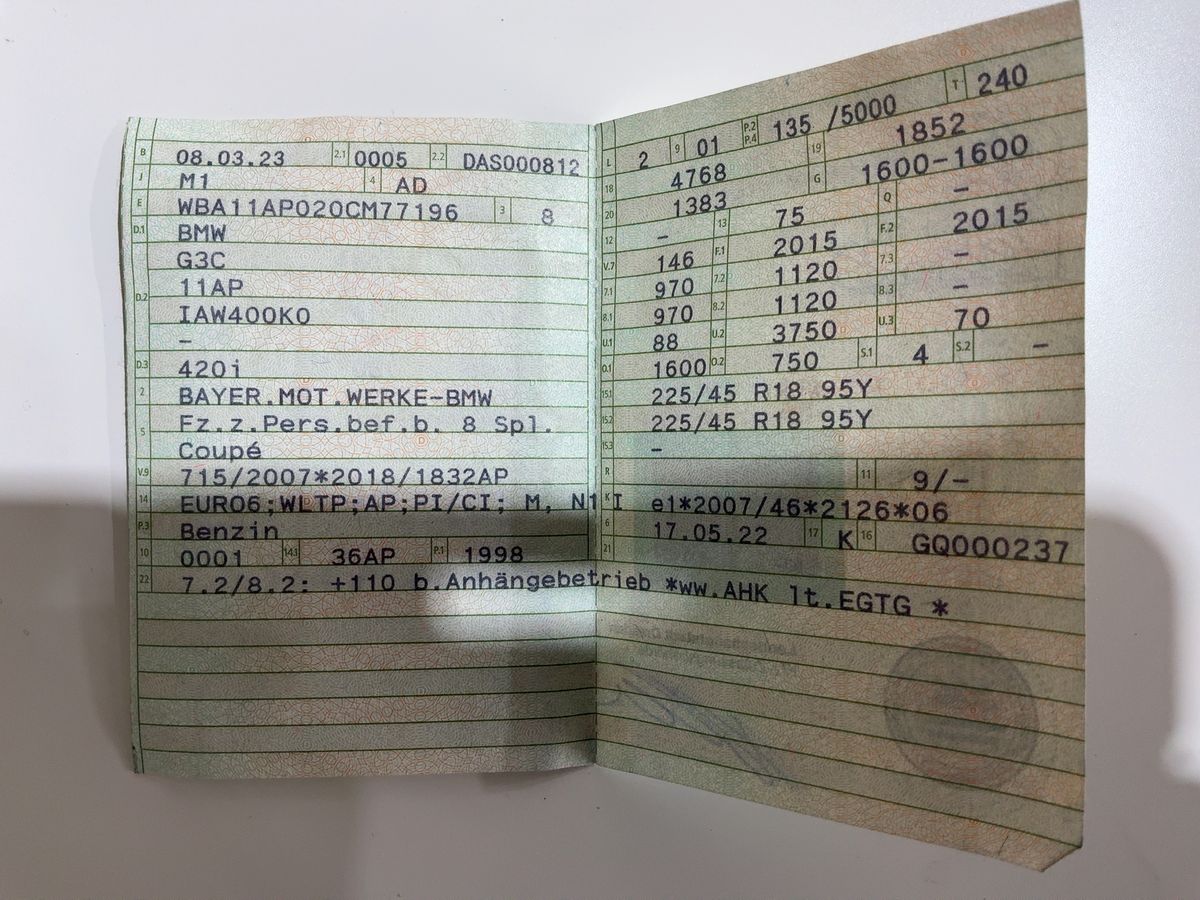 B 08.03.23 2.1 0005 2.2 DAS000812
J M1 4 AD
E WBA11AP020CM77196 3 8
D.1 BMW
G3C
D.2 11AP
IAW400K0
–
D.3 420i
2 BAYER.MOT.WERKE-BMW
5 Fz.z.Pers.bef.b. 8 Spl.
Coupé
V.9 715/2007*2018/1832AP
14 EURO6;WLTP;AP;PI/CI; M, N1 I
P.3 Benzin
10 0001 14.1 36AP P.1 1998
22 7.2/8.2: +110 b.Anhängebetrieb *ww.AHK lt.EGTG *
L 2 9 01 P.2 P.4 135 /5000 T 240
18 4768 19 1852
20 1383 G 1600-1600
12 – 13 75 Q –
V.7 146 F.1 2015 F.2 2015
7.1 970 7.2 1120 7.3 –
8.1 970 8.2 1120 8.3 –
U.1 88 U.2 3750 U.3 70
O.1 1600 O.2 750 S.1 4 S.2 –
15.1 225/45 R18 95Y
15.2 225/45 R18 95Y
15.3 –
R 11 9/–
K e1*2007/46*2126*06
6 17.05.22 17 K 16 GQ000237
21